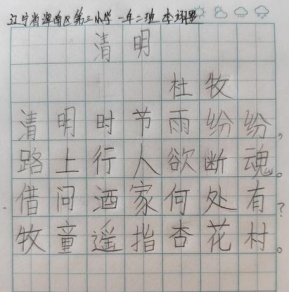 辽宁省 第二小学 一年二班 李
清明
杜牧
清明时节雨纷纷，
路上行人欲断魂。
借问酒家何处有？
牧童遥指杏花村。